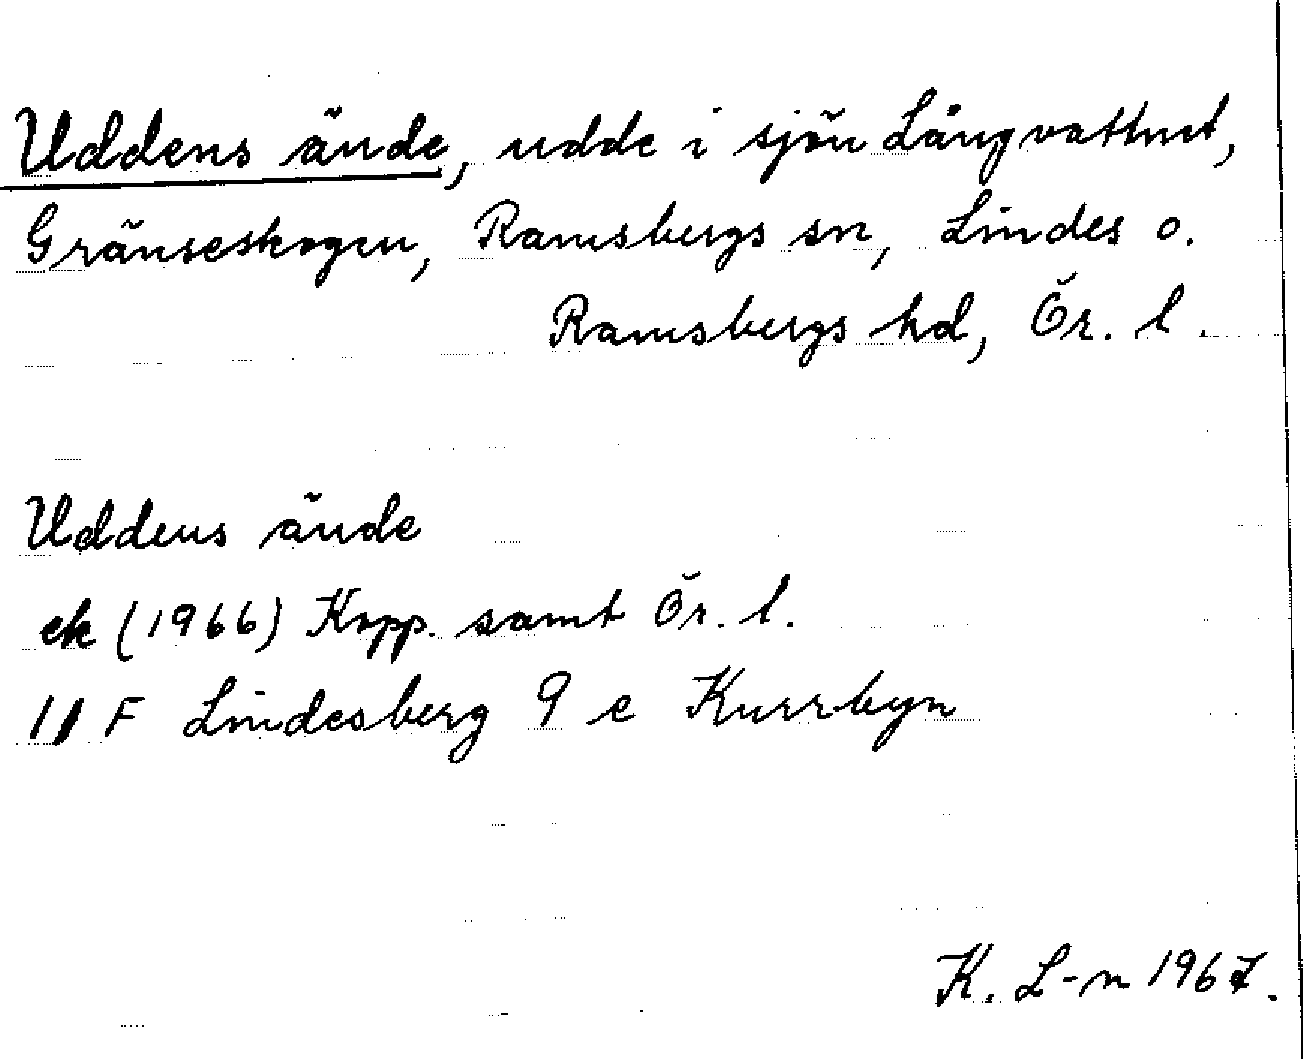 Uddens ände, udde i sjön Långvattnet,
Gränseskogen, Ramsbergs sn, Lindes o.
Ramsbergs hd, Ör. l.
Uddens ände
ek (1966) Kopp. samt Ör. l.
11 F Lindesberg 9 e Kurrbyn
K. L-n 1967.